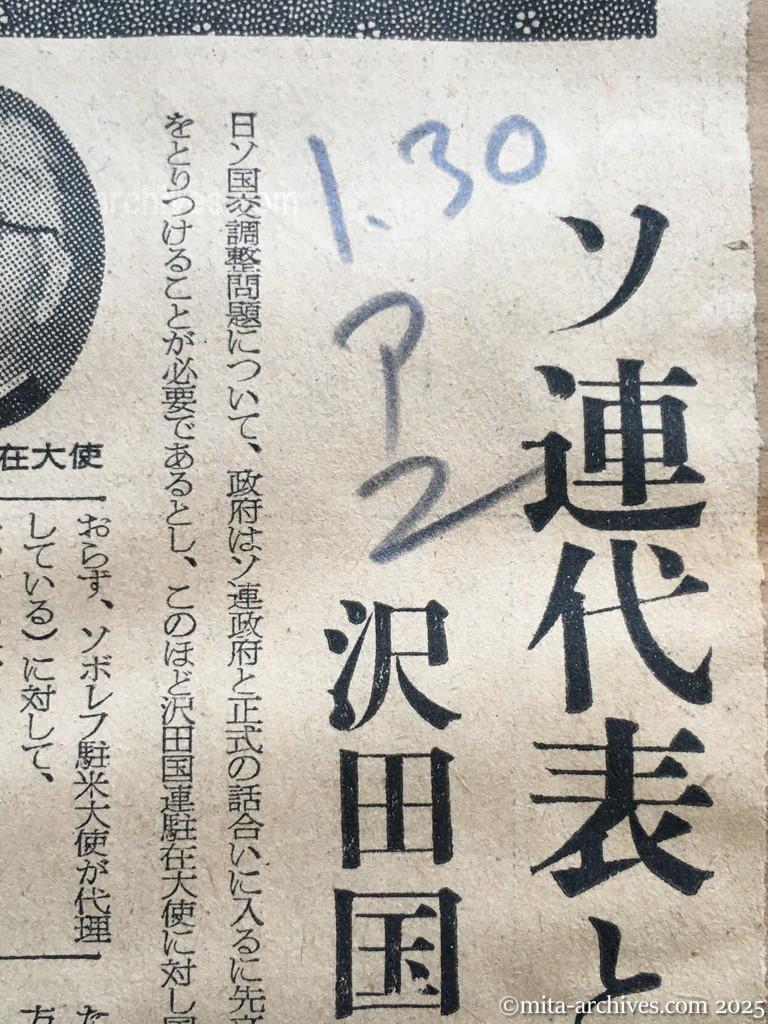 ソ連代表と
1.30
ア
2
沢田国
日ソ国交調整問題について、政府はソ連政府と正式の話合いに入るに先立
をとりつけることが必要であるとし、このほど沢田国連駐在大使に対し国
在大使
おらず、ソボレフ駐米大使が代理
している）に対して、
た
方
archives.com
©mita-archives.com 2025